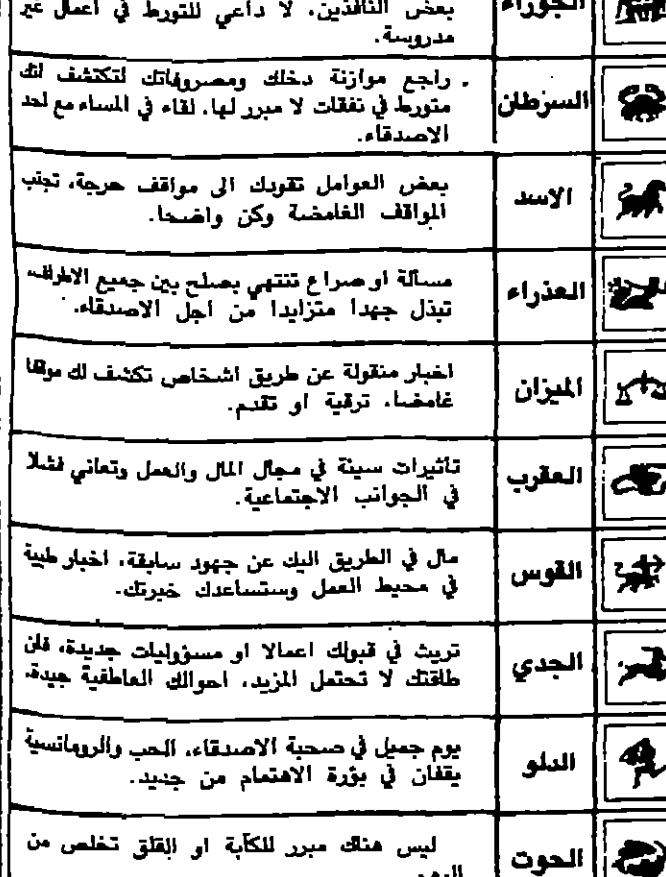 الجوزاء
بعض النافذين، لا داعي للتورط في اعمال غير
مدروسة.
السرطان
راجع موازنة دخلك ومصروفاتك لتكتشف انك
متورط في نفقات لا مبرر لها. لقاء في المساء مع احد
الاصدقاء.
الاسد
بعض العوامل تقودك الى مواقف حرجة، تجنب
المواقف الغامضة وكن واضحا.
العذراء
مسألة او صراع تنتهي بصلح بين جميع الاطراف،
تبذل جهدا متزايدا من اجل الاصدقاء.
الميزان
اخبار منقولة عن طريق اشخاص تكشف لك موقفا
غامضا. ترقية او تقدم.
العقرب
تاثيرات سيئة في مجال المال والعمل وتعاني فشلا
في الجوانب الاجتماعية.
القوس
مال في الطريق اليك عن جهود سابقة، اخبار طيبة
في محيط العمل وستساعدك خبرتك.
الجدي
تريث في قبولك اعمالا او مسؤوليات جديدة، فان
طاقتك لا تحتمل المزيد، احوالك العاطفية جيدة.
الدلو
يوم جميل في صحبة الاصدقاء، الحب والرومانسية
يقفان في بؤرة الاهتمام من جديد.
الحوت
ليس هناك مبرر للكآبة او القلق تخلص من